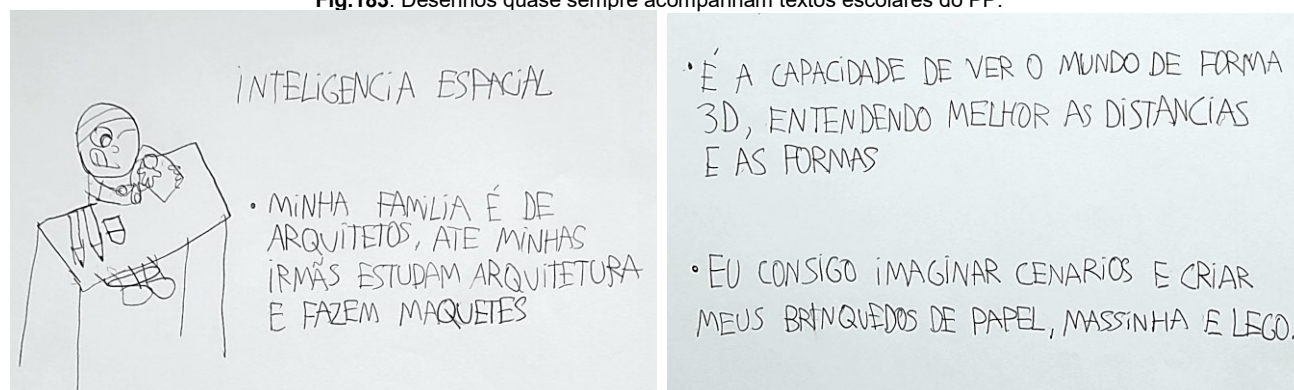 Fig.183: Desenhos quase sempre acompanham textos escolares do PP.
INTELIGENCIA ESPACIAL
• MINHA FAMILIA É DE
ARQUITETOS, ATE MINHAS
IRMÃS ESTUDAM ARQUITETURA
E FAZEM MAQUETES
• É A CAPACIDADE DE VER O MUNDO DE FORMA
3D, ENTENDENDO MELHOR AS DISTANCIAS
E AS FORMAS
• EU CONSIGO IMAGINAR CENARIOS E CRIAR
MEUS BRINQUEDOS DE PAPEL, MASSINHA E LEGO.